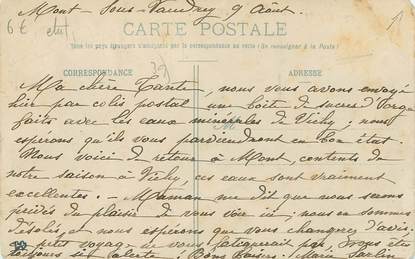 Mont-Sous-Vaudrey 9 Août.
6€
CARTE POSTALE
Tous les pays étrangers n'acceptent pas la correspondance au verso (Se renseigner à la Poste)
CORRESPONDANCE
ADRESSE
Ma chère Tante, nous vous avons envoyé
hier par colis postal une boîte de sucres d'orge
faits avec les eaux minérales de Vichy, nous
espérons qu'ils vous parviendront en bon état.
Nous voici de retour à Mont, contents de
notre saison à Vichy, ces eaux sont vraiment
excellentes. - Maman me dit que nous serons
privés du plaisir de vous voir ici; nous en sommes
désolés, et nous espérons que vous changerez d'avis;
petit voyage ne vous fatiguerait pas, vous êtes
toujours si alerte! Bons Baisers. Marie